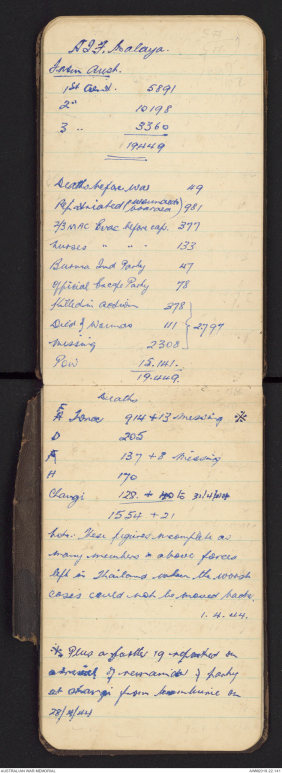 A.I.F. Malaya.
From Aust.
1st Cont. 5891
2" 10198
3 " 3360
19449
Deaths before war 49
Repatriated (wounded & boarded) 981
2/3 MAC Evac before cap. 377
Nurses " " " 133
Burma Ind Party 47
Official Escape Party 78
Killed in action 378
Died of Wounds 111 } 2797
Missing 2308
POW 15.141.
19.449.
Deaths
F Force 914 + 13 missing *
D 205
A 137 + 8 missing
H 170
Changi 128. + to 31/4/44
1554 + 21
Note: These figures incomplete as
many members of above forces
left in Thailand when the worst
cases could not be moved back.
1.4.44.
* Plus a further 19 reported on
arrival of remainder of party
at Changi from on
28/4/44
AUSTRALIAN WAR MEMORIAL